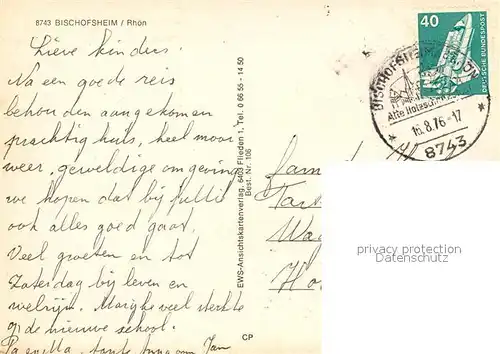 8743 BISCHOFSHEIM / Rhön
Lieve kinders.
Na een goede reis
behouden aangekomen
prachtig huis, heel mooi
weer, geweldige omgeving
we hopen dat bij jullie
ook alles goed gaat.
Veel groeten en tot
Zaterdag bij leven en
welzijn. Margke veel sterkte
op de nieuwe school.
Pa en Ma, tante
EWS-Ansichtskartenverlag, 6403 Flieden 1, Tel. 0 66 55 - 14 50
Best. Nr. 106
CP
40
DEUTSCHE BUNDESPOST
BISCHOFSHEIM RHÖN
16.8.76-17
8743
Fam
Wa
Ho
privacy protection
for Card Owner